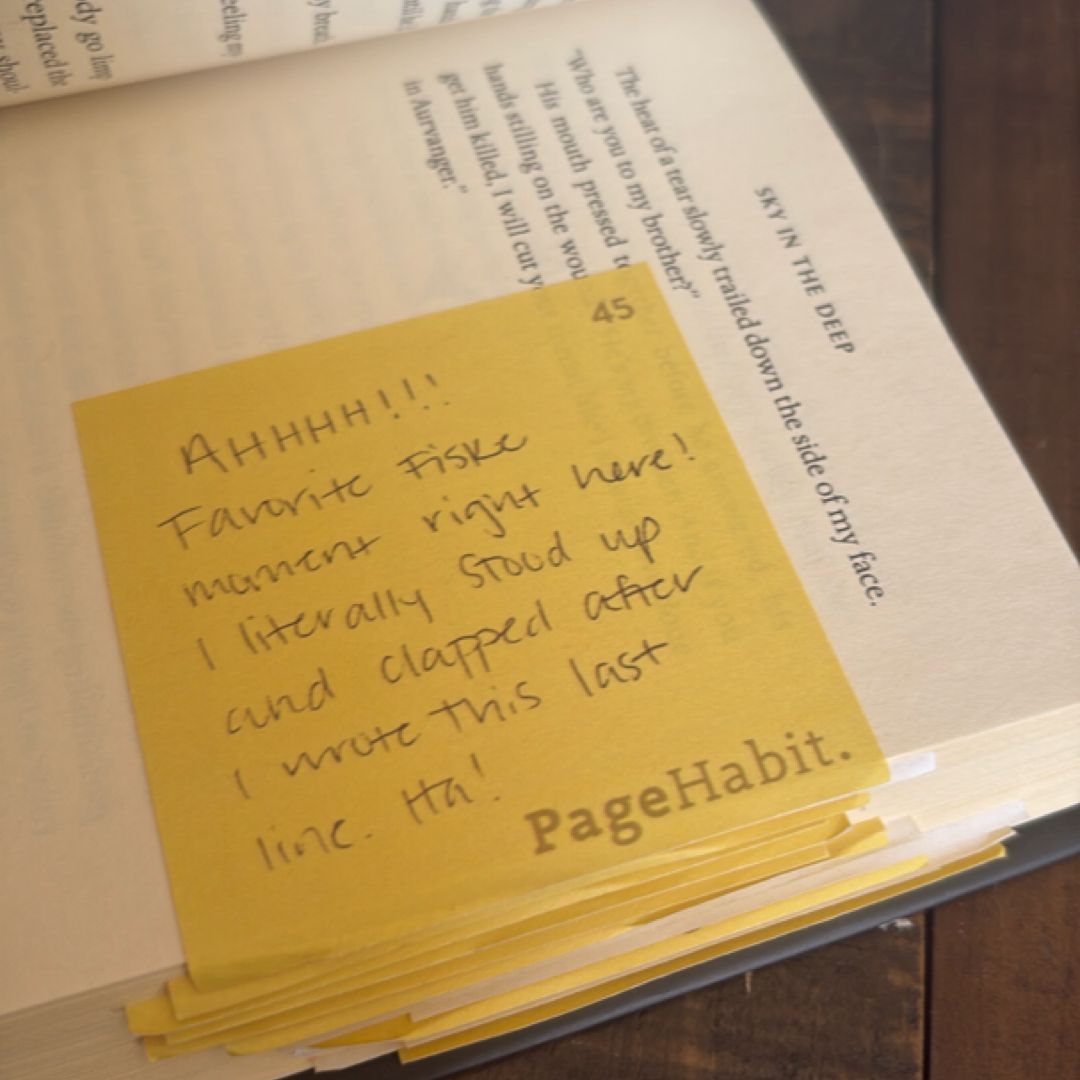 SKY IN THE DEEP
The heat of a tear slowly trailed down the side of my face.
"Who are you to my brother?"
His mouth pressed
hands stilling on the
get him killed, I will cut
in Aurvanger."
45
AHHHH!!!
Favorite Fiske
moment right here!
I literally stood up
and clapped after
I wrote this last
line. Ha!
PageHabit.